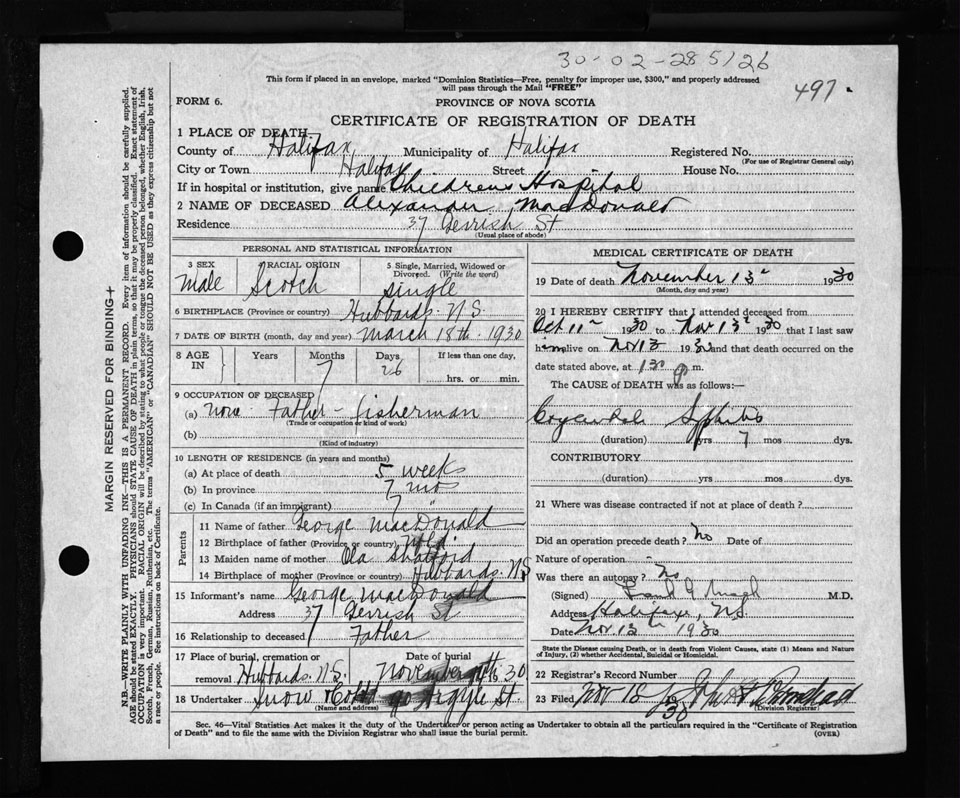 30-02-285126
This form if placed in an envelope, marked "Dominion Statistics—Free, penalty for improper use, $300," and properly addressed
will pass through the Mail "FREE"
497
FORM 6.
PROVINCE OF NOVA SCOTIA
CERTIFICATE OF REGISTRATION OF DEATH
1 PLACE OF DEATH
County of Halifax Municipality of Halifax Registered No.
(For use of Registrar General only)
City or Town Halifax Street House No.
If in hospital or institution, give name Childrens Hospital
2 NAME OF DECEASED Alexander MacDonald
Residence 37 Gerrish St
(Usual place of abode)
PERSONAL AND STATISTICAL INFORMATION
3 SEX Male
RACIAL ORIGIN Scotch
5 Single, Married, Widowed or Divorced. (Write the word) single
6 BIRTHPLACE (Province or country) Hubbards. N.S.
7 DATE OF BIRTH (month, day and year) March 18th. 1930
8 AGE IN Years Months 7 Days 26 If less than one day, hrs. or min.
9 OCCUPATION OF DECEASED
(a) none Father - fisherman
(Trade or occupation or kind of work)
(b)
(Kind of industry)
10 LENGTH OF RESIDENCE (in years and months)
(a) At place of death 5 weeks
(b) In province 7 mos
(c) In Canada (if an immigrant) 7 "
Parents
11 Name of father George MacDonald
12 Birthplace of father (Province or country) Nfld
13 Maiden name of mother Ola Shatford
14 Birthplace of mother (Province or country) Hubbards. N.S
15 Informant's name George MacDonald
Address 37 Gerrish St
16 Relationship to deceased Father
17 Place of burial, cremation or removal Hubbards. N.S. Date of burial November 30
18 Undertaker Snow & Co Ltd 90 Argyle St
(Name and address)
MEDICAL CERTIFICATE OF DEATH
19 Date of death November 13 1930
(Month, day and year)
20 I HEREBY CERTIFY that I attended deceased from
Oct 11 1930 to Nov 13 1930 that I last saw
him alive on Nov 13 1930 and that death occurred on the
date stated above, at 1 30 p m.
The CAUSE of DEATH was as follows:
Congenital Syphilis
(duration) yrs 7 mos dys.
CONTRIBUTORY
(duration) yrs. mos. dys.
21 Where was disease contracted if not at place of death?
Did an operation precede death? No Date of
Nature of operation
Was there an autopsy? No
(Signed) M.D.
Address Halifax, N.S.
Date Nov 13th 1930
State the Disease causing Death, or in death from Violent Causes, state (1) Means and Nature of Injury, (2) whether Accidental, Suicidal or Homicidal.
22 Registrar's Record Number
23 Filed Nov 18 30
(Division Registrar)
Sec. 46—Vital Statistics Act makes it the duty of the Undertaker or person acting as Undertaker to obtain all the particulars required in the "Certificate of Registration
of Death" and to file the same with the Division Registrar who shall issue the burial permit.
(OVER)
MARGIN RESERVED FOR BINDING
N.B.—WRITE PLAINLY WITH UNFADING INK—THIS IS A PERMANENT RECORD. Every item of information should be carefully supplied.
AGE should be stated EXACTLY. PHYSICIANS should STATE CAUSE OF DEATH in plain terms, so that it may be properly classified. Exact statement of
OCCUPATION is very important. RACIAL ORIGIN will be described by stating to what people or tongue the deceased person belonged, whether English, Irish,
Scotch, French, German, Russian, Ruthenian, etc. The terms "AMERICAN" or "CANADIAN" SHOULD NOT BE USED as they express citizenship but not
a race or people. See instructions on back of Certificate.